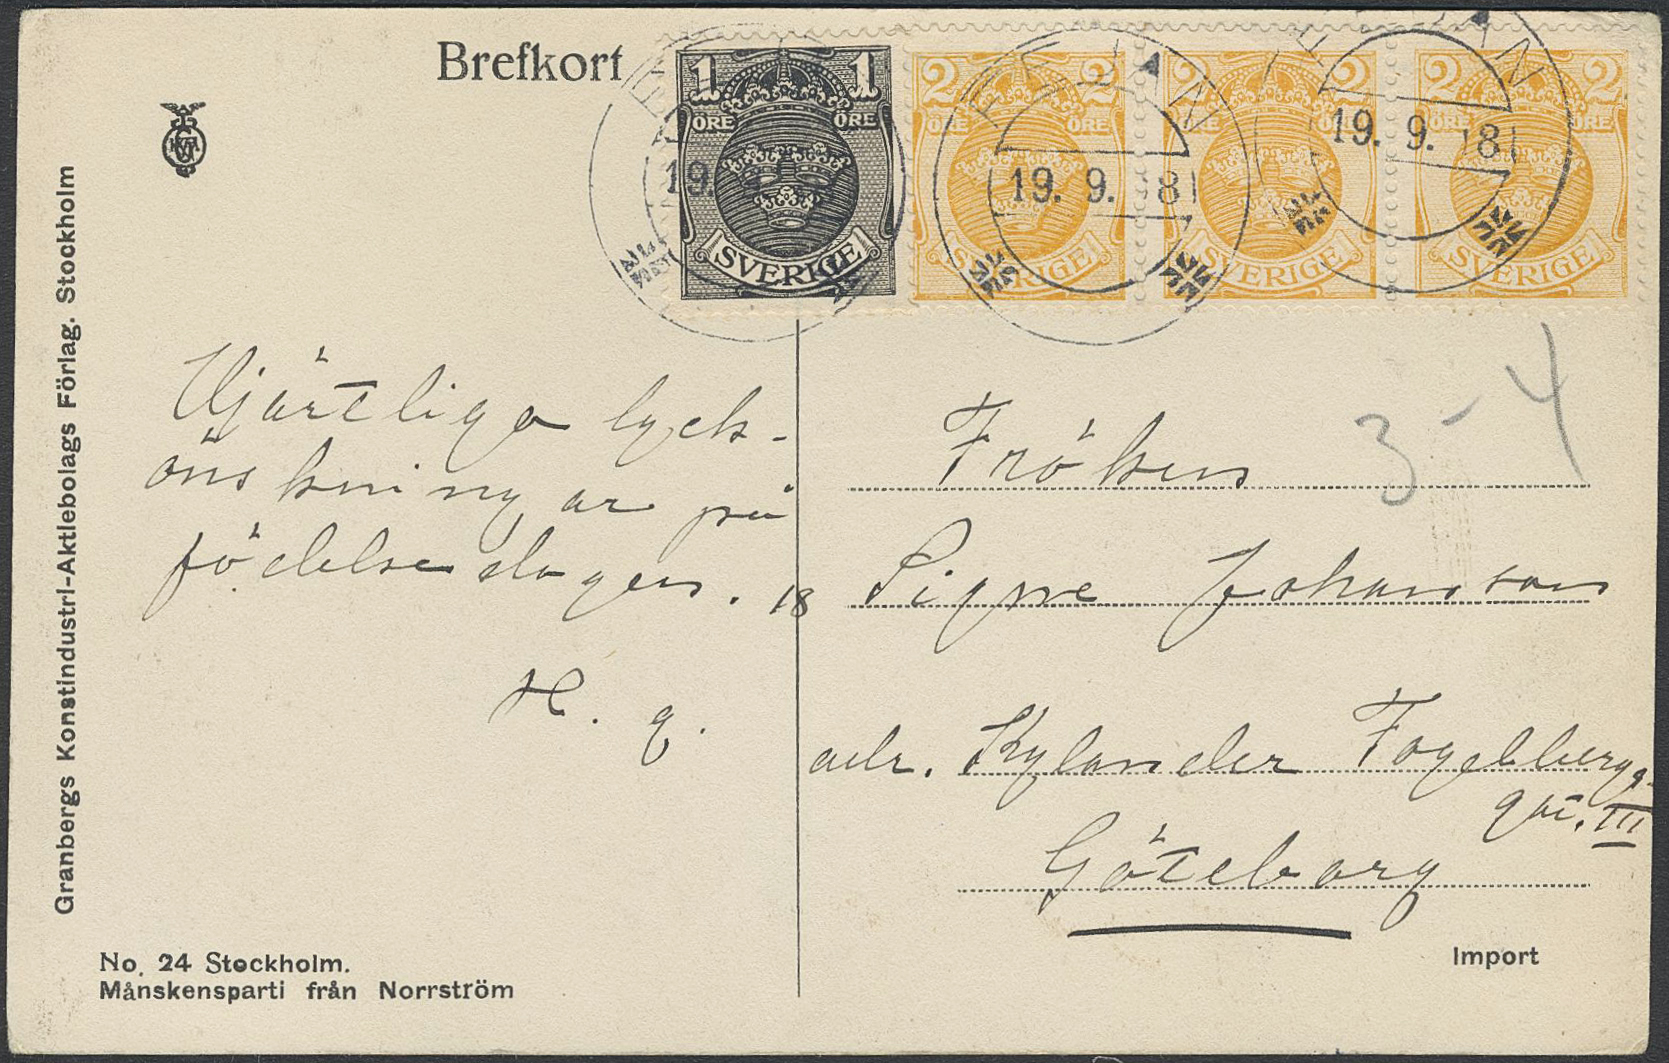 Brefkort
1 1
ÖRE ÖRE
SVERIGE
2 2
ÖRE ÖRE
SVERIGE
2 2
ÖRE ÖRE
SVERIGE
2 2
ÖRE ÖRE
SVERIGE
19.
19. 9. 18
19. 9. 18
Granbergs Konstindustri-Aktiebolags Förlag. Stockholm
Hjärtliga lyck-
önskningar på
födelsedagen. 18
H. g.
3 - 4
Fröken
Signe Johansson
adr. Kylander Fogelbergs
gat. III
Göteborg
Import
No. 24 Stockholm.
Månskensparti från Norrström